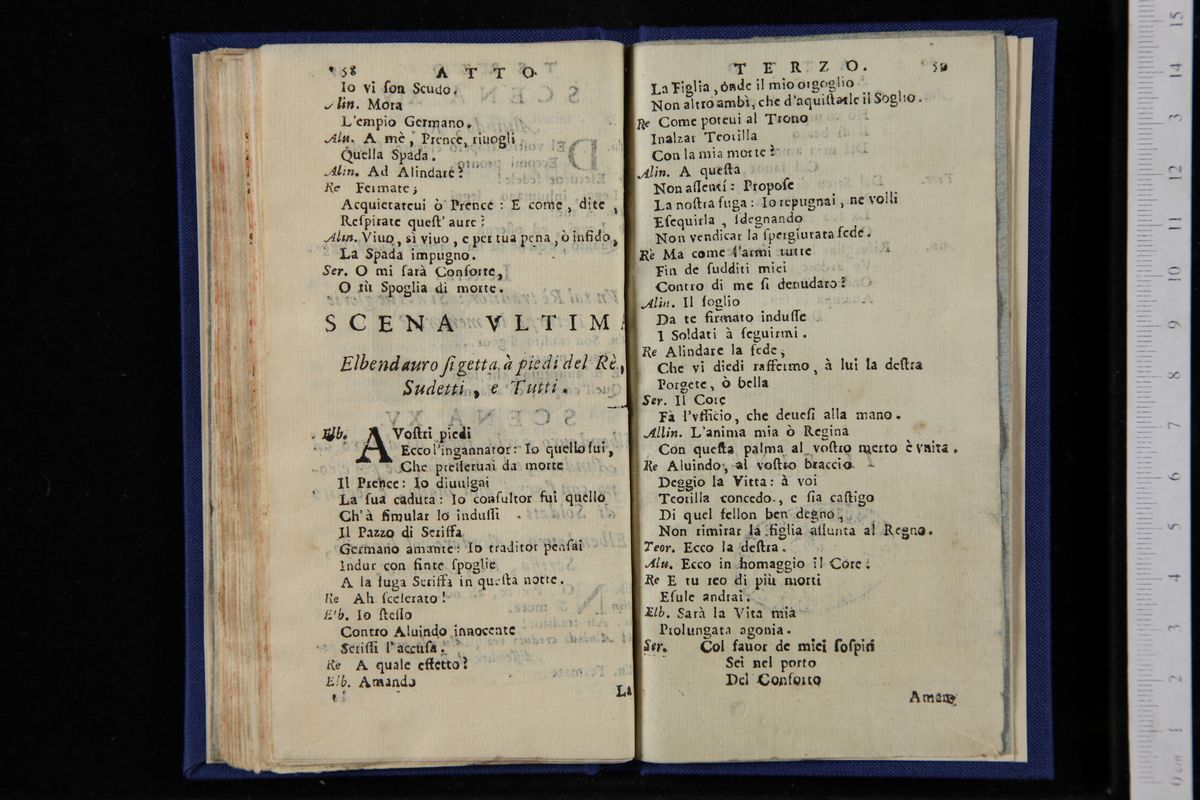 58 ATTO
Io vi son Scudo.
Alin. Mora
L'empio Germano.
Alu. A mè, Prence, riuogli
Quella Spada.
Alin. Ad Alindare?
Re Fermate;
Acquietateui ò Prence: E come, dite,
Respirate quest' aure?
Alin. Viuo, sì viuo, e per tua pena, ò infido,
La Spada impugno.
Ser. O mi sarà Consorte,
O tù Spoglia di morte.
SCENA VLTIMA
Elbendauro si getta à piedi del Rè,
Sudetti, e Tutti.
Elb. A Vostri piedi
Ecco l'ingannator: Io quello fui,
Che preseruai da morte
Il Prence: Io diuulgai
La sua caduta: Io consultor fui quello
Ch'à simular lo indussi.
Il Pazzo di Seriffa
Germano amante: Io traditor pensai
Indur con finte spoglie
A la fuga Seriffa in questa notte.
Re Ah scelerato!
Elb. Io stesso
Contro Aluindo innocente
Scrissi l'accusa.
Re A quale effetto?
Elb. Amando
La
TERZO. 59
La Figlia, onde il mio orgoglio
Non altro ambì, che d'aquistarle il Soglio.
Re Come poteui al Trono
Inalzar Teorilla
Con la mia morte?
Alin. A questa
Non assentí: Propose
La nostra fuga: Io repugnai, ne volli
Esequirla, sdegnando
Non vendicar la spergiurata fede.
Re Ma come l'armi tutte
Fin de sudditi miei
Contro di me si denudaro?
Alin. Il foglio
Da te firmato indusse
I Soldati à seguirmi.
Re Alindare la fede,
Che vi diedi raffermo, à lui la destra
Porgete, ò bella
Ser. Il Core
Fà l'vfficio, che deuesi alla mano.
Allin. L'anima mia ò Regina
Con questa palma al vostro merto è vnita.
Re Aluindo, al vostro braccio
Deggio la Vitta: à voi
Teorilla concedo, e sia castigo
Di quel fellon ben degno,
Non rimirar la figlia assunta al Regno.
Teor. Ecco la destra.
Alu. Ecco in homaggio il Core!
Re E tu reo di più morti
Esule andrai.
Elb. Sarà la Vita mia
Prolungata agonia.
Ser. Col fauor de miei sospiri
Sei nel porto
Del Conforto
Amam